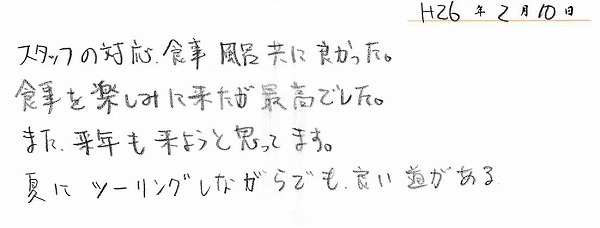 H26年2月10日
スタッフの対応、食事 風呂 共に良かった。
食事を楽しみに来たが最高でした。
また、来年も来ようと思ってます。
夏に ツーリングしながらでも、良い道がある